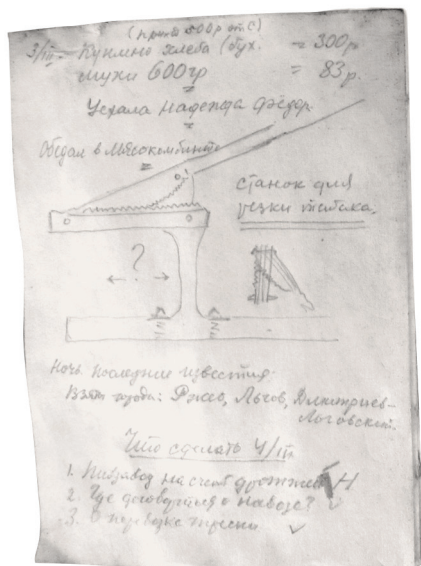 (принёс 500р от С)
3/III – Куплено хлеба (бух. = 300р
муки 600гр = 83р.
Уехала Надежда Фёдор.
Обедал в Мясокомбинате
станок для
резки табака.
?
Ночь последние известия.
Взяты города: Ржев, Льгов, Дмитриев-
Льговский.
Что сделать 4/III.
1. Пивзавод насчет дрожжей Н
2. Где договориться о навозе? ✓
3. О перевозке ✓